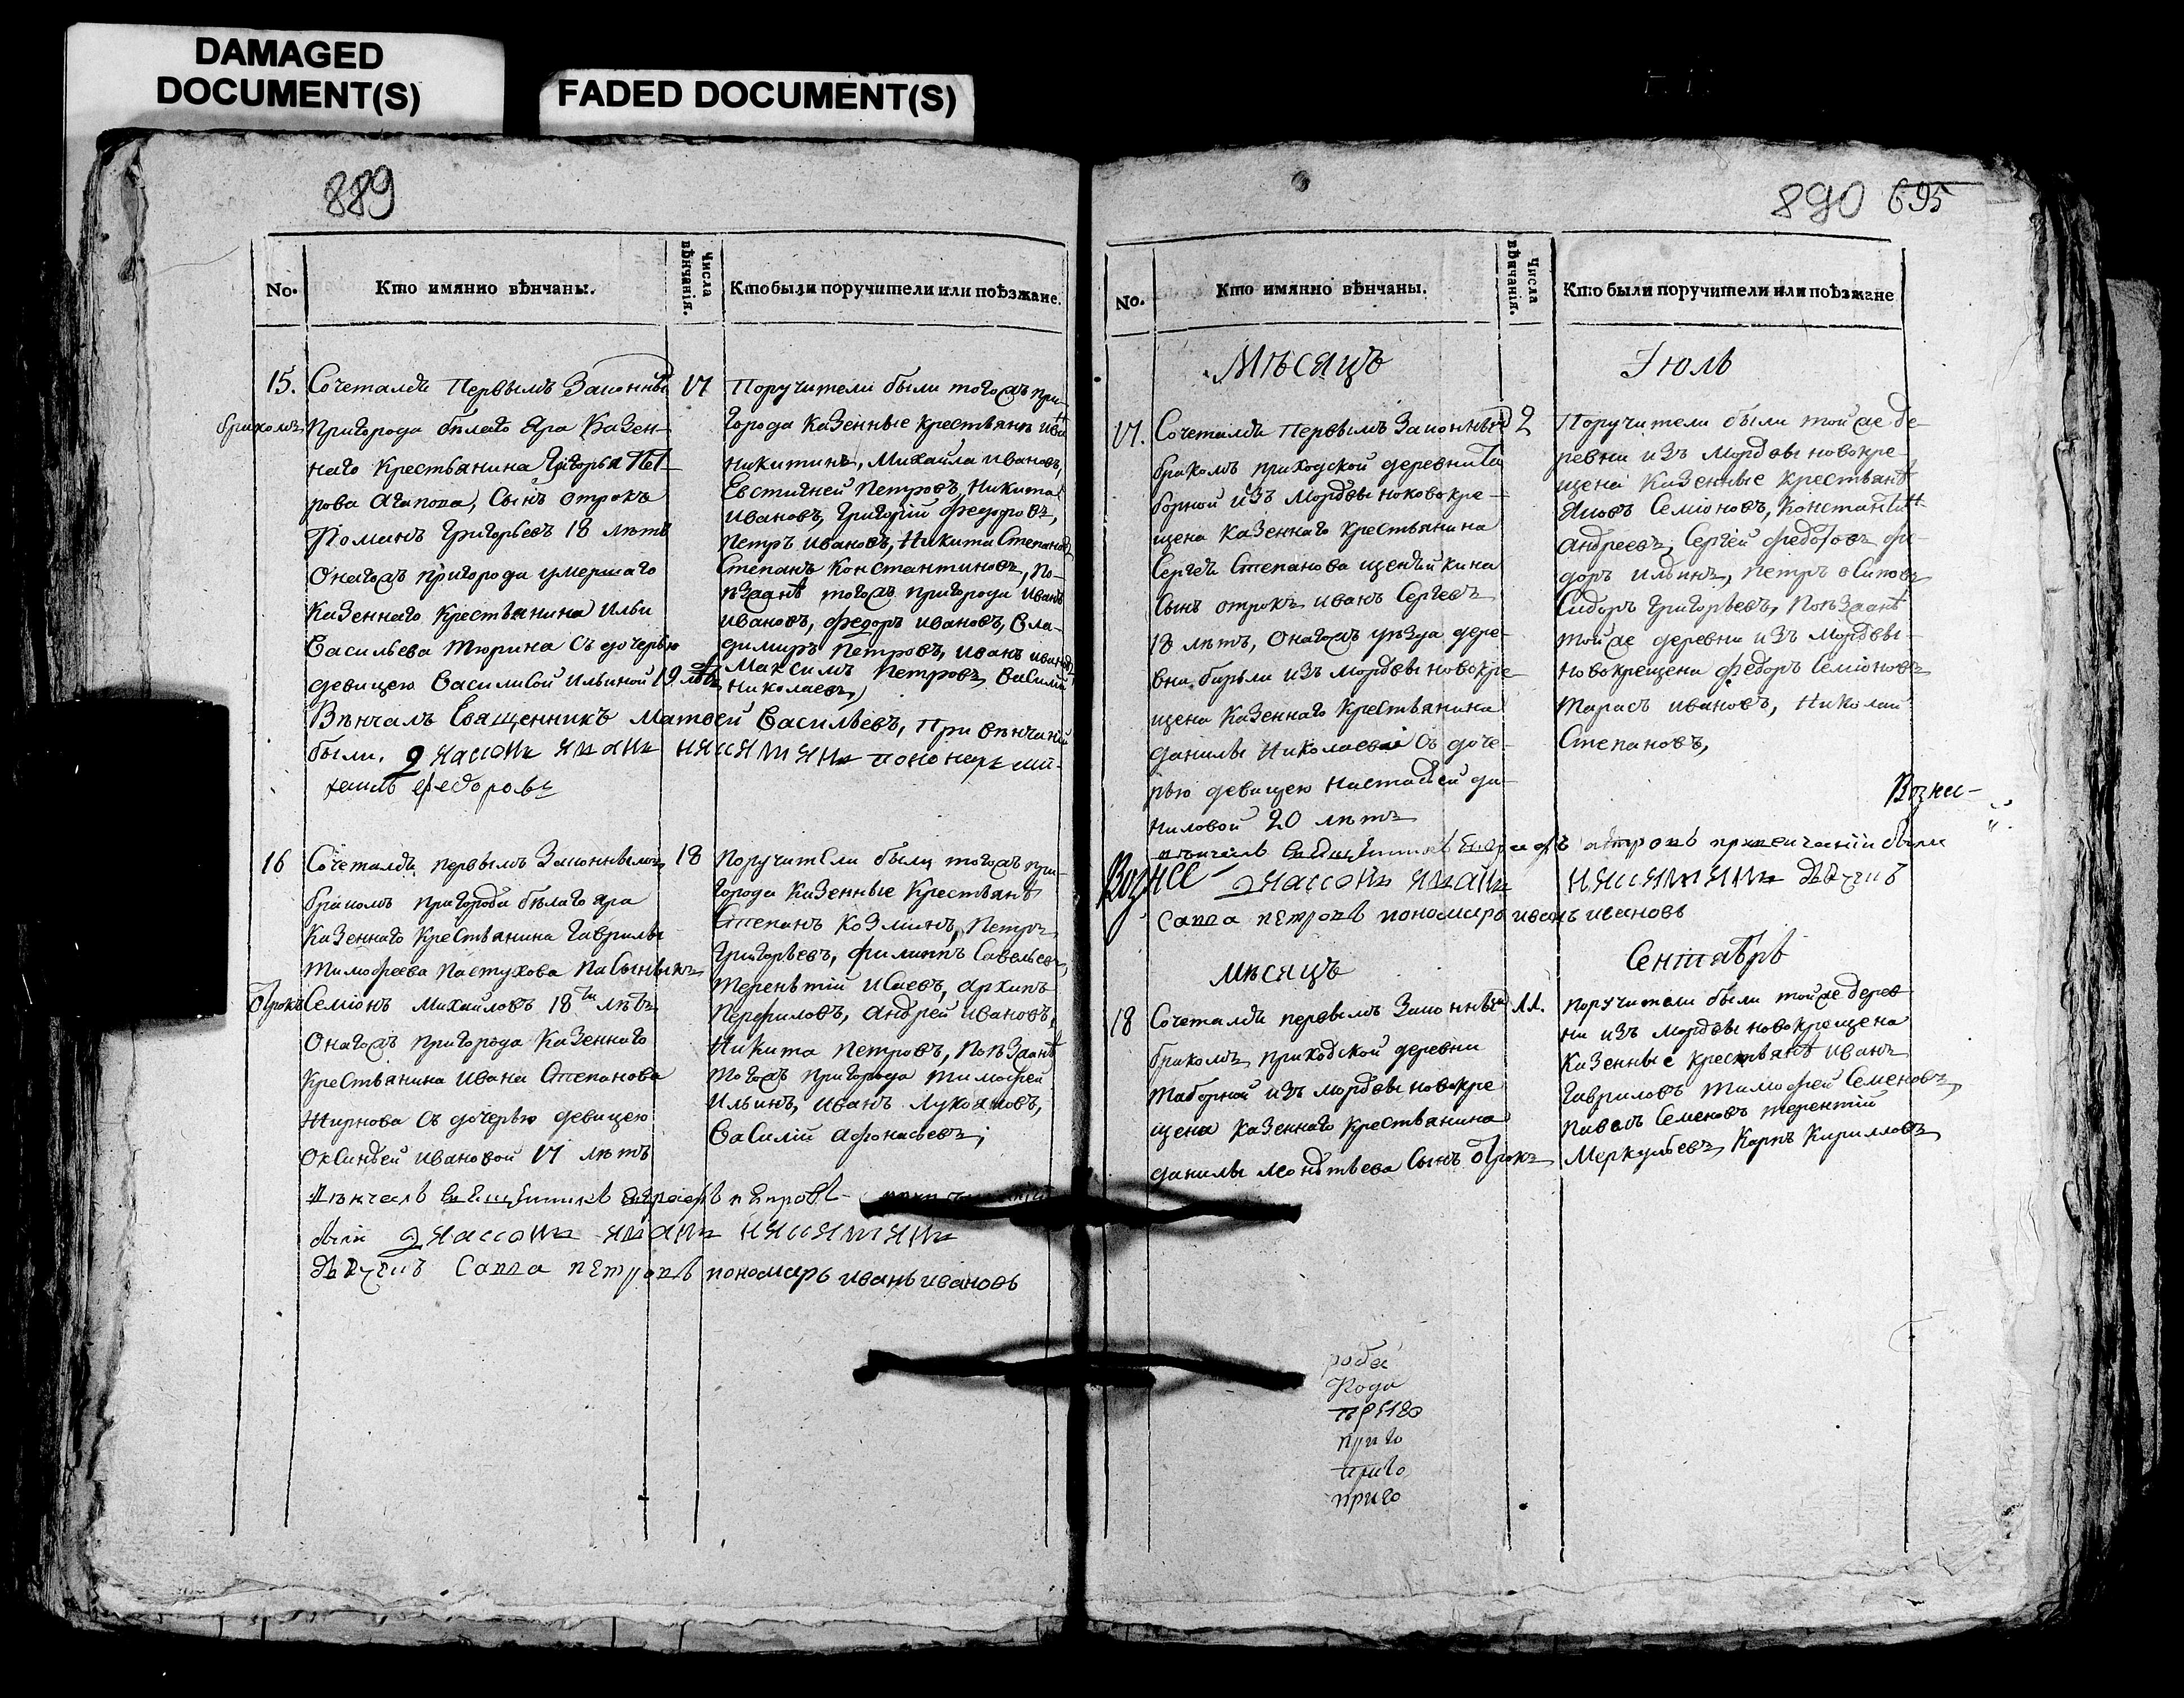 DAMAGED
DOCUMENT(S)
FADED DOCUMENT(S)
889
No.
Кто имянно вѣнчаны.
Числа вѣнчанія.
Кто были поручители или поѣзжане.
15.
Сочетался Первымъ Законны
бракомъ
Пригорода бѣлаго Яра Казен-
наго Крестьянина Григорья Пет
рова Агапова, Сынъ отрокъ
Романъ Григорьевъ 18 лѣтъ
Онагожъ пригорода умершаго
Казеннаго Крестьянина Ильи
Васильева Тюрина Съ дочерью
девицею Василисой Ильиной 19 лѣтъ
17
Поручители были тогожъ при-
города Казенные крестьянѣ Ива
Никитинъ, Михайла Ивановъ,
Евстигней Петровъ, Никита
Ивановъ, Григорій Федоровъ,
Петръ Ивановъ, Никита Степановъ
Степанъ Константиновъ, По-
ѣзжанѣ тогожъ пригорода Иванъ
Ивановъ, Федоръ Ивановъ, Вла-
димиръ Петровъ, Иванъ Ивановъ
Максимъ Петровъ, Василій
Николаевъ,
Вѣнчалъ Священникъ Матвей Васильевъ, При вѣнчаніи
были,
пономарь ми-
хаилъ Федоровъ
16
Сочетался первымъ Законнымъ
бракомъ пригорода бѣлаго яра
Казеннаго Крестьянина Гаврилы
Тимофеева Пастухова Пасынокъ
отрокъ Семіонъ Михайловъ 18ти лѣтъ
Онагожъ пригорода Казеннаго
Крестьянина Ивана Степанова
Жирнова Съ дочерью девицею
Оксиньей Ивановой 17 лѣтъ
18
Поручители были тогожъ при-
города Казенные Крестьянѣ
Степанъ Козминъ, Петръ
Григорьевъ, Филиппъ Савельевъ,
Терентій Исаевъ, Архипъ
Перфиловъ, Андрей Ивановъ,
Никита Петровъ, Поѣзжанѣ
Тогожъ пригорода Тимофей
Ильинъ, Иванъ Лукояновъ,
Василій Афонасьевъ;
вѣнчалъ Священникъ петровъ
были
Савва петровъ пономарь иванъ ивановъ
890 695
No.
Кто имянно вѣнчаны.
Числа вѣнчанія.
Кто были поручители или поѣзжане
Мѣсяцъ Іюль
17.
Сочетался Первымъ Законны
бракомъ приходской деревни Та
борной изъ Мордвы новокре-
щена казеннаго крестьянина
Сергея Степанова
Сынъ отрокъ Иванъ Сергеевъ
18 лѣтъ, Онагожъ уѣзда дере-
вни бирли изъ Мордвы новокре
щена Казеннаго Крестьянина
Данилы Николаева Съ доче-
рью девицею Настасьей да-
ниловой 20 лѣтъ
2
Поручители были тойже де-
ревни изъ Мордвы новокре-
щена Казенные Крестьянѣ
Яковъ Семіоновъ, Константинъ
Андреевъ, Сергей Федотовъ Фе-
доръ Ильинъ, Петръ Осиповъ
Сидоръ Григорьевъ, Поѣзжанѣ
тойже деревни изъ Мордвы-
новокрещена Федоръ Семіоновъ
Тарасъ Ивановъ, Николай
Степановъ,
Возне-
вѣнчалъ Священникъ петровъ были
Возне
Савва петровъ пономарь иванъ ивановъ
мѣсяцъ Сентябрь
18
Сочетался первымъ Законны
бракомъ приходской деревни
таборной изъ мордвы новокре
щена казеннаго Крестьянина
данилы леонтьева Сынъ отрокъ
11.
Поручители были тойже дерев
ни изъ мордвы новокрещена
Казенные крестьянѣ Иванъ
Гавриловъ Тимофей Семеновъ,
Павелъ Семеновъ Терентій
Меркульевъ, Карпъ Кирилловъ
приго
приго
приго